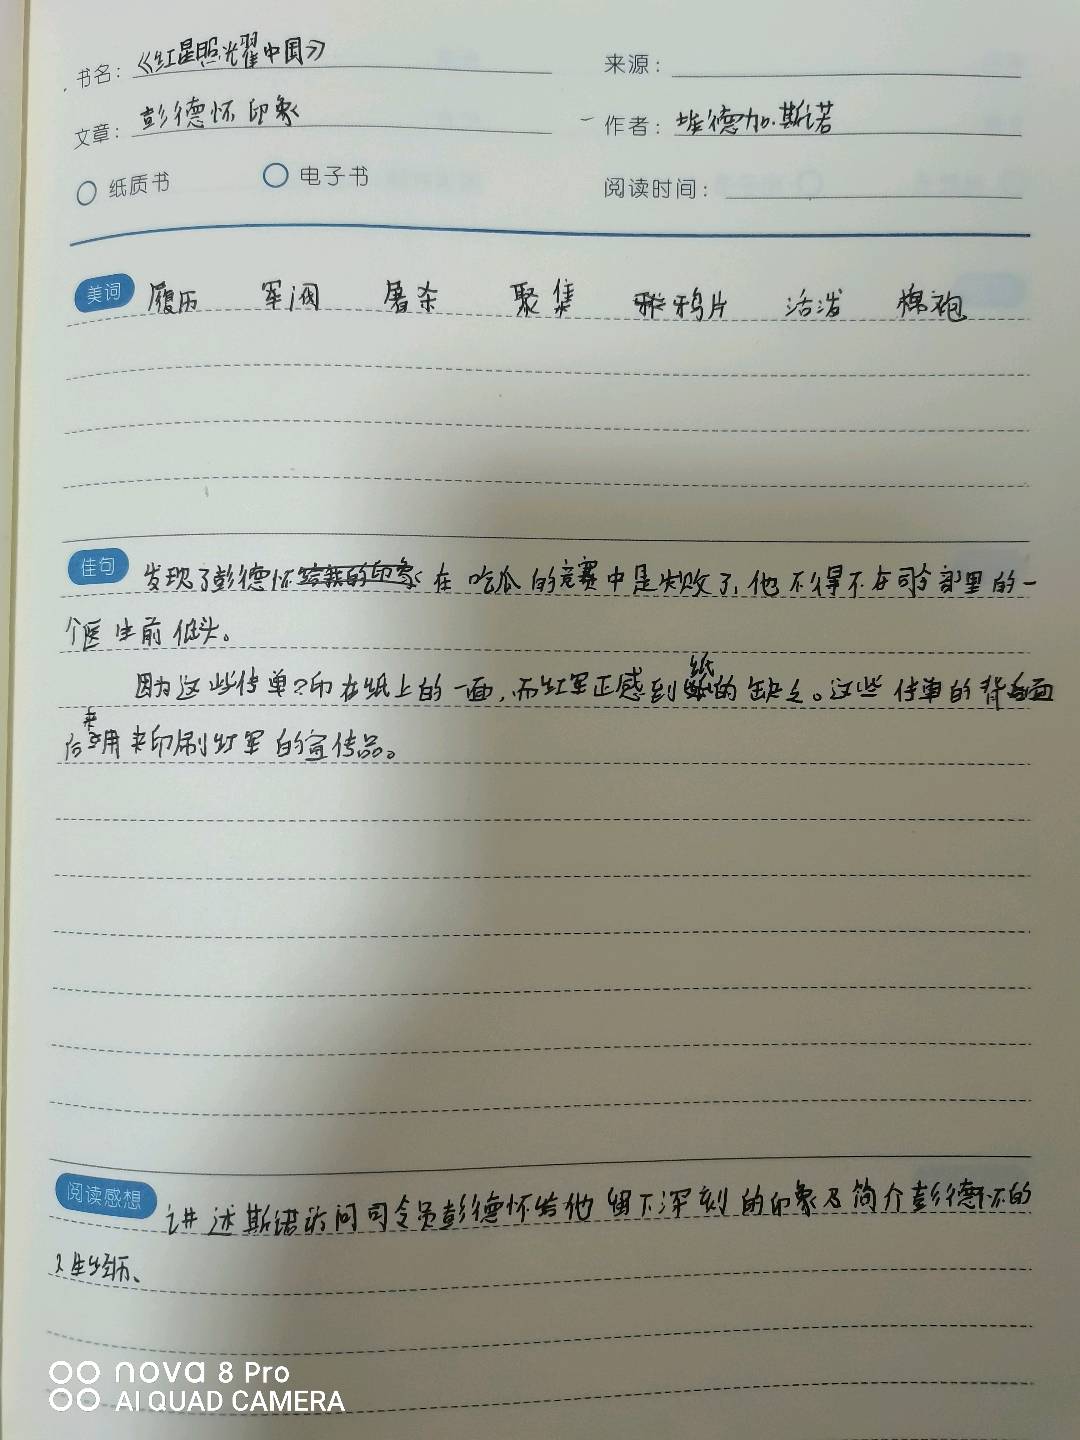 书名：《红星照光耀中国》
来源：
文章：彭德怀印象
作者：埃德加.斯诺
纸质书
电子书
阅读时间：
美词 履历 军阀 屠杀 聚集 鸦片 活泼 棉袍
佳句 发现了彭德怀在吃瓜的竞赛中是失败了,他不得不在司令部里的一
个医生前低头。
因为这些传单只印在纸上的一面,而红军正感到纸的缺乏。这些传单的背面
后来用来印刷红军的宣传品。
阅读感想 讲述斯诺访问司令员彭德怀给他留下深刻的印象及简介彭德怀的
人生经历、
nova 8 Pro
AI QUAD CAMERA